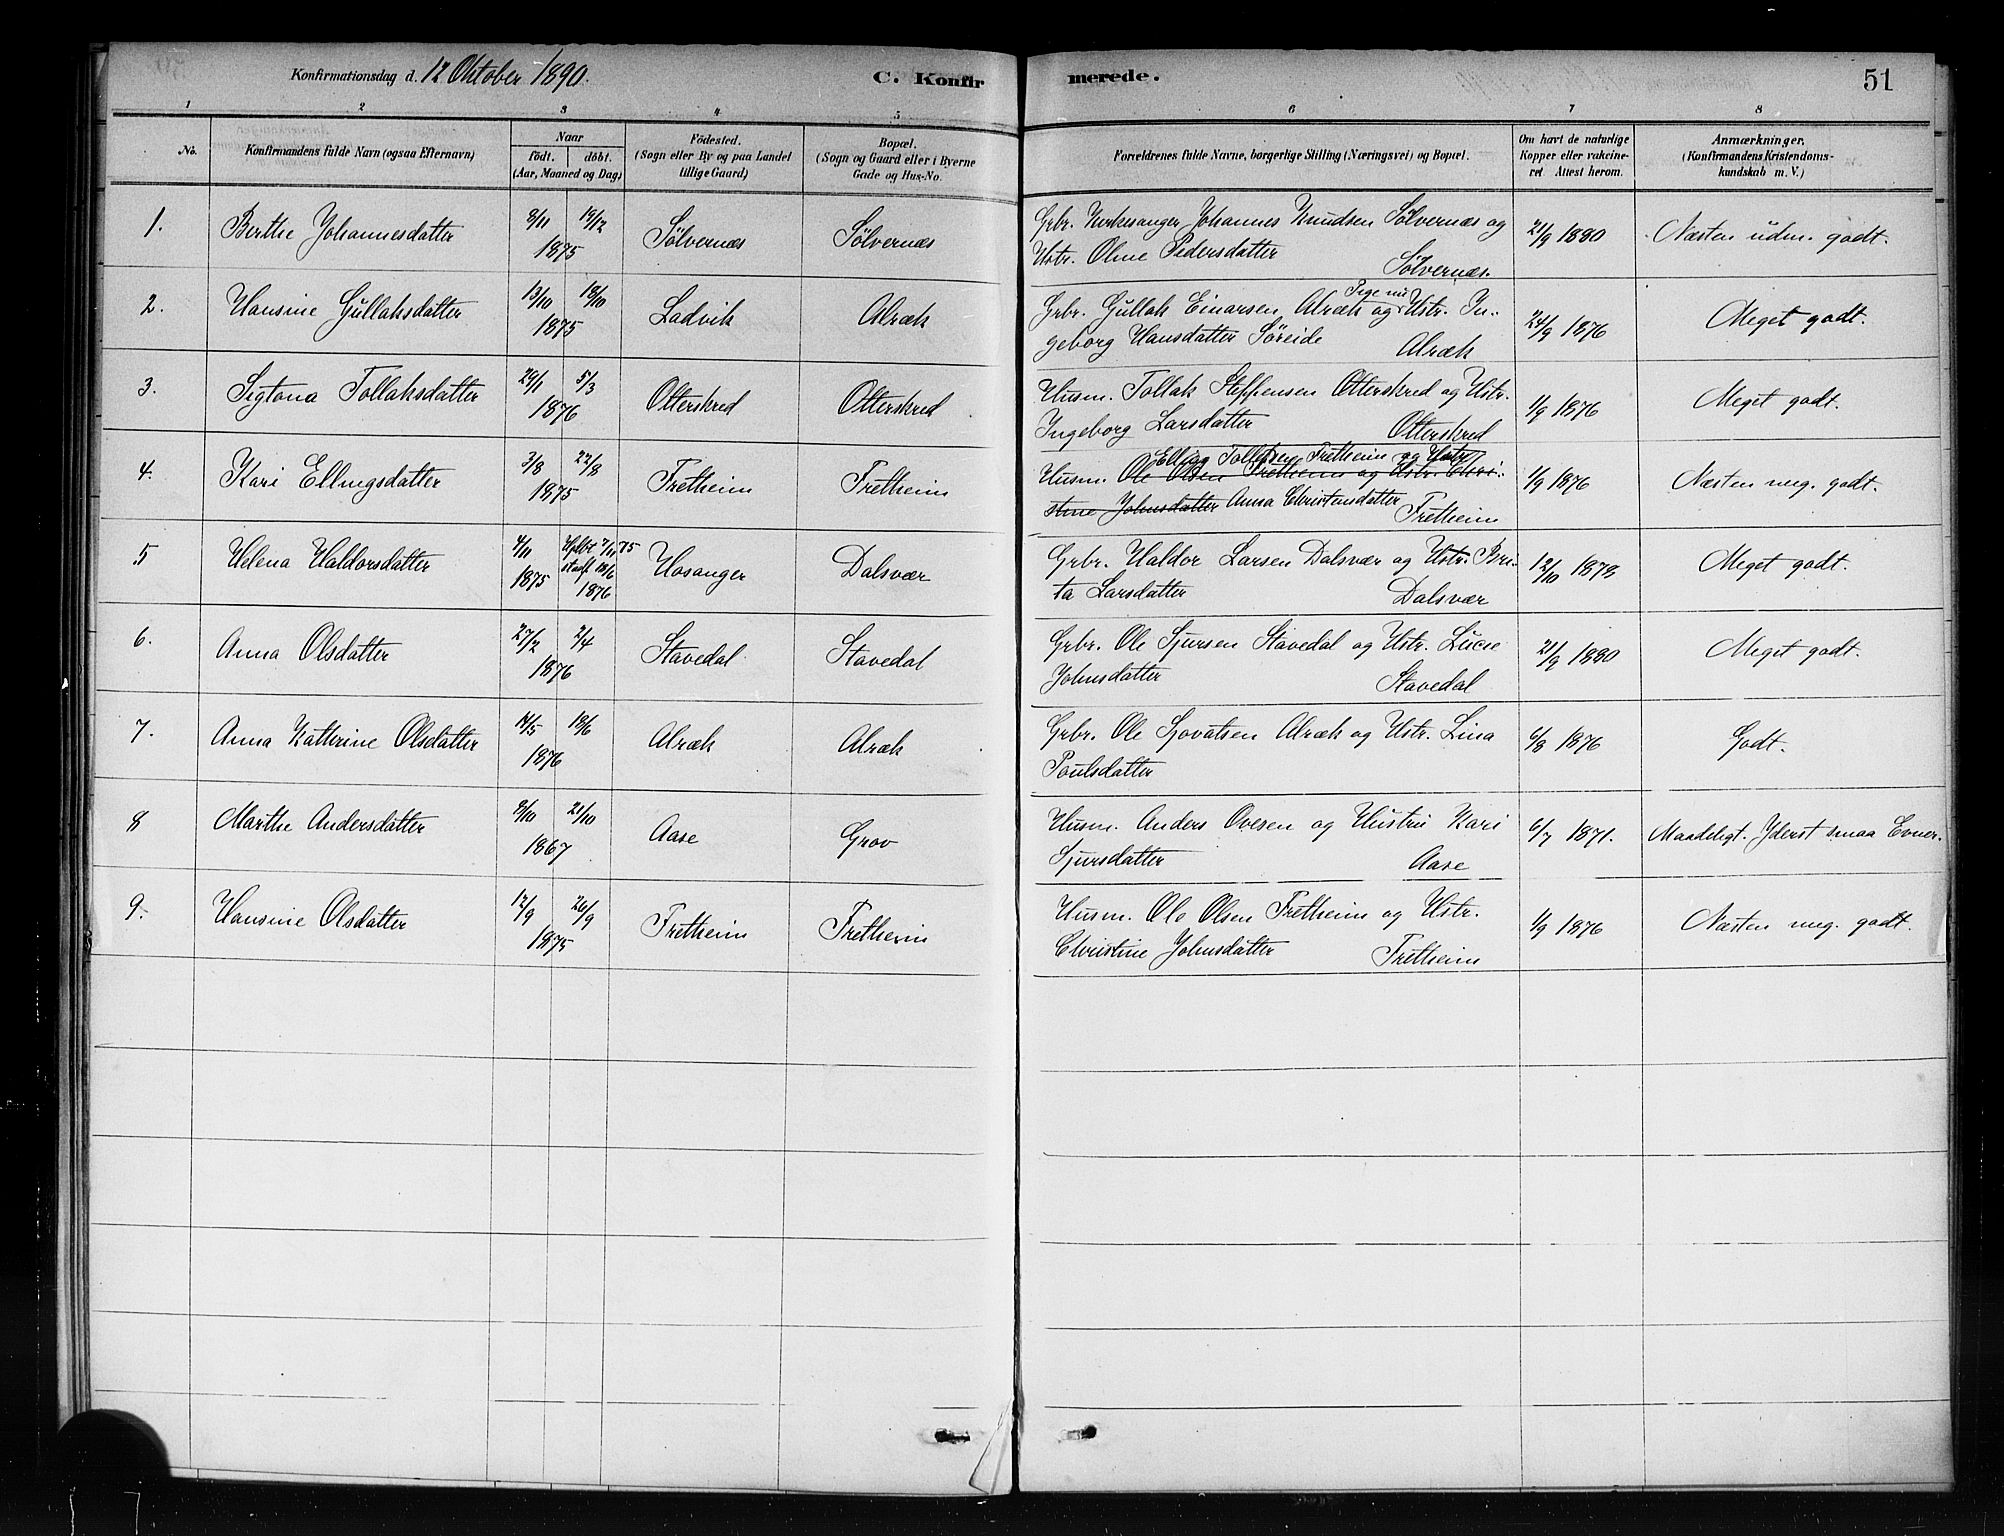 Konfirmationsdag d. 12 Oktober 1890.
C. Konfir merede.
51
1 2 3 4 5 6 7 8
No.
Konfirmandens fulde Navn (ogsaa Efternavn)
Naar
födt. döbt.
(Aar, Maaned og Dag)
Födested.
(Sogn eller By og paa Landet
tillige Gaard)
Bopæl.
(Sogn og Gaard eller i Byerne
Gade og Hus-No.
Forældrenes fulde Navne, borgerlige Stilling (Næringsvei) og Bopæl.
Om havt de naturlige
Kopper eller vakcine-
ret Attest herom.
Anmærkninger.
(Konfirmandens Kristendoms-
kundskab m. V.)
1. Berthe Johannesdatter 8/11 19/12 1875 Sølvernæs Sølvernæs
Grbr. Kirkesanger Johannes Knudsen Sølvernæs og
Ustr. Oline Pedersdatter Sølvernæs.
21/9 1880 Næsten udm. godt.
2. Hansine Gullaksdatter 13/10 18/10 1875 Ladvik Alræk
Grbr. Gullak Einarsen Alræk og Pige nu Ustr. In-
geborg Hansdatter Søreide Alræk
24/9 1876 Meget godt.
3. Sigtona Tollaksdatter 29/1 5/3 1876 Otterskred Otterskred
Husm. Tollak Steffensen Otterskred og Ustr.
Ingeborg Larsdatter Otterskred
1/9 1876 Meget godt.
4. Kari Ellingsdatter 3/8 22/8 1875 Fretheim Fretheim
Elling Fretheim og Ustr.
Husm. Ole Olsen Fretheim og Ustr. Chri-
stine Johnsdatter Anna Christensdatter Fretheim
1/9 1876 Næsten meg. godt.
5 Helena Haldorsdatter 4/11 1875 18/6 1876 Hosanger Dalsvær
Grbr. Haldor Larsen Dalsvær og Ustr. Bri-
ta Larsdatter Dalsvær
12/10 1878 Meget godt.
6. Anna Olsdatter 27/2 2/4 1876 Stavedal Stavedal
Grbr. Ole Sjursen Stavedal og Ustr. Lucie
Johnsdatter Stavedal
21/9 1880 Meget godt.
7. Anna Katherine Olsdatter 14/5 18/6 1876 Alræk Alræk
Grbr. Ole Sjovatsen Alræk og Ustr. Lina
Poulsdatter
6/8 1876 Godt.
8 Marthe Andersdatter 8/10 21/10 1867 Aase Grov
Husm. Anders Ovesen og Hustru Kari
Sjursdatter Aase
6/7 1871. Maadeligt. Yderst smaa Evner.
9. Hansine Olsdatter 12/9 26/9 1875 Fretheim Fretheim
Husm. Ole Olsen Fretheim og Ustr.
Christine Johnsdatter Fretheim
1/9 1876 Næsten meg. godt.